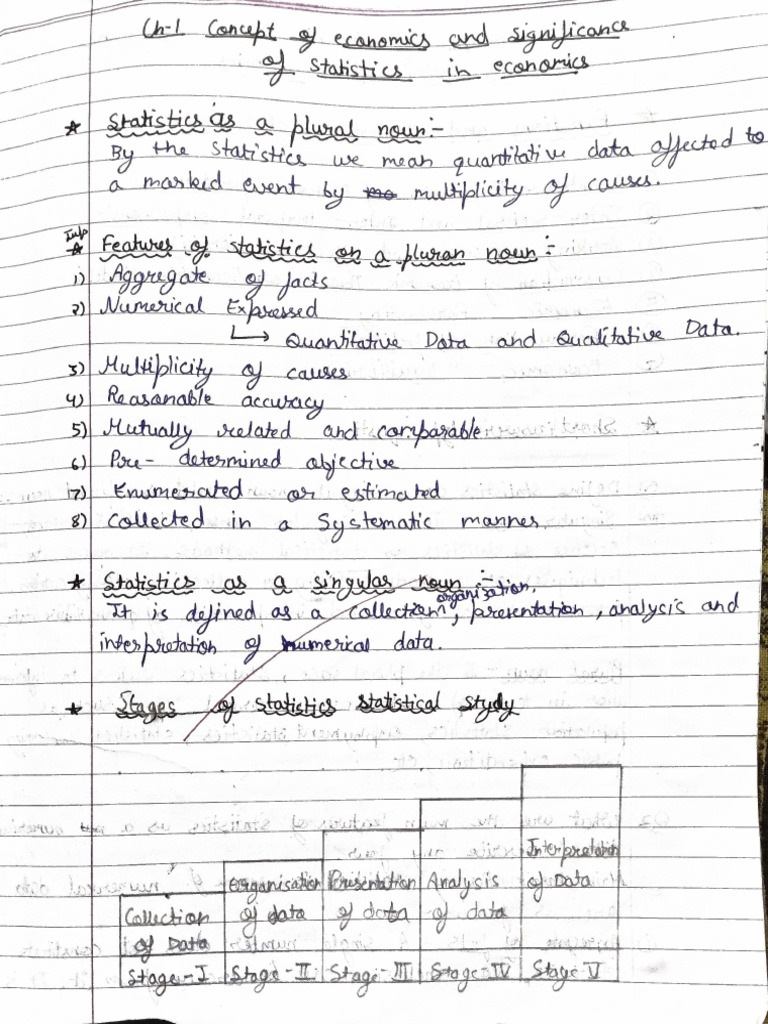 Ch-1 Concept of economics and significance
of statistics in economics
★ Statistics as a plural noun:-
By the statistics we mean quantitative data affected to
a marked event by multiplicity of causes.
Imp
★ Features of statistics on a pluran noun:-
1) Aggregate of facts
2) Numerical Expressed
↳ Quantitative Data and Qualitative Data.
3) Multiplicity of causes
4) Reasonable accuracy
5) Mutually related and comparable
6) Pre-determined objective
7) Enumerated or estimated
8) Collected in a Systematic manner
★ Statistics as a singular noun:-
organisation,
It is defined as a collection, presentation, analysis and
interpretation of numerical data.
★ Stages of statistics statistical study
Collection
of Data
Stage-I
Organisation
of data
Stage-II
Presentation
of data
Stage-III
Analysis
of data
Stage-IV
Interpretation
of Data
Stage-V